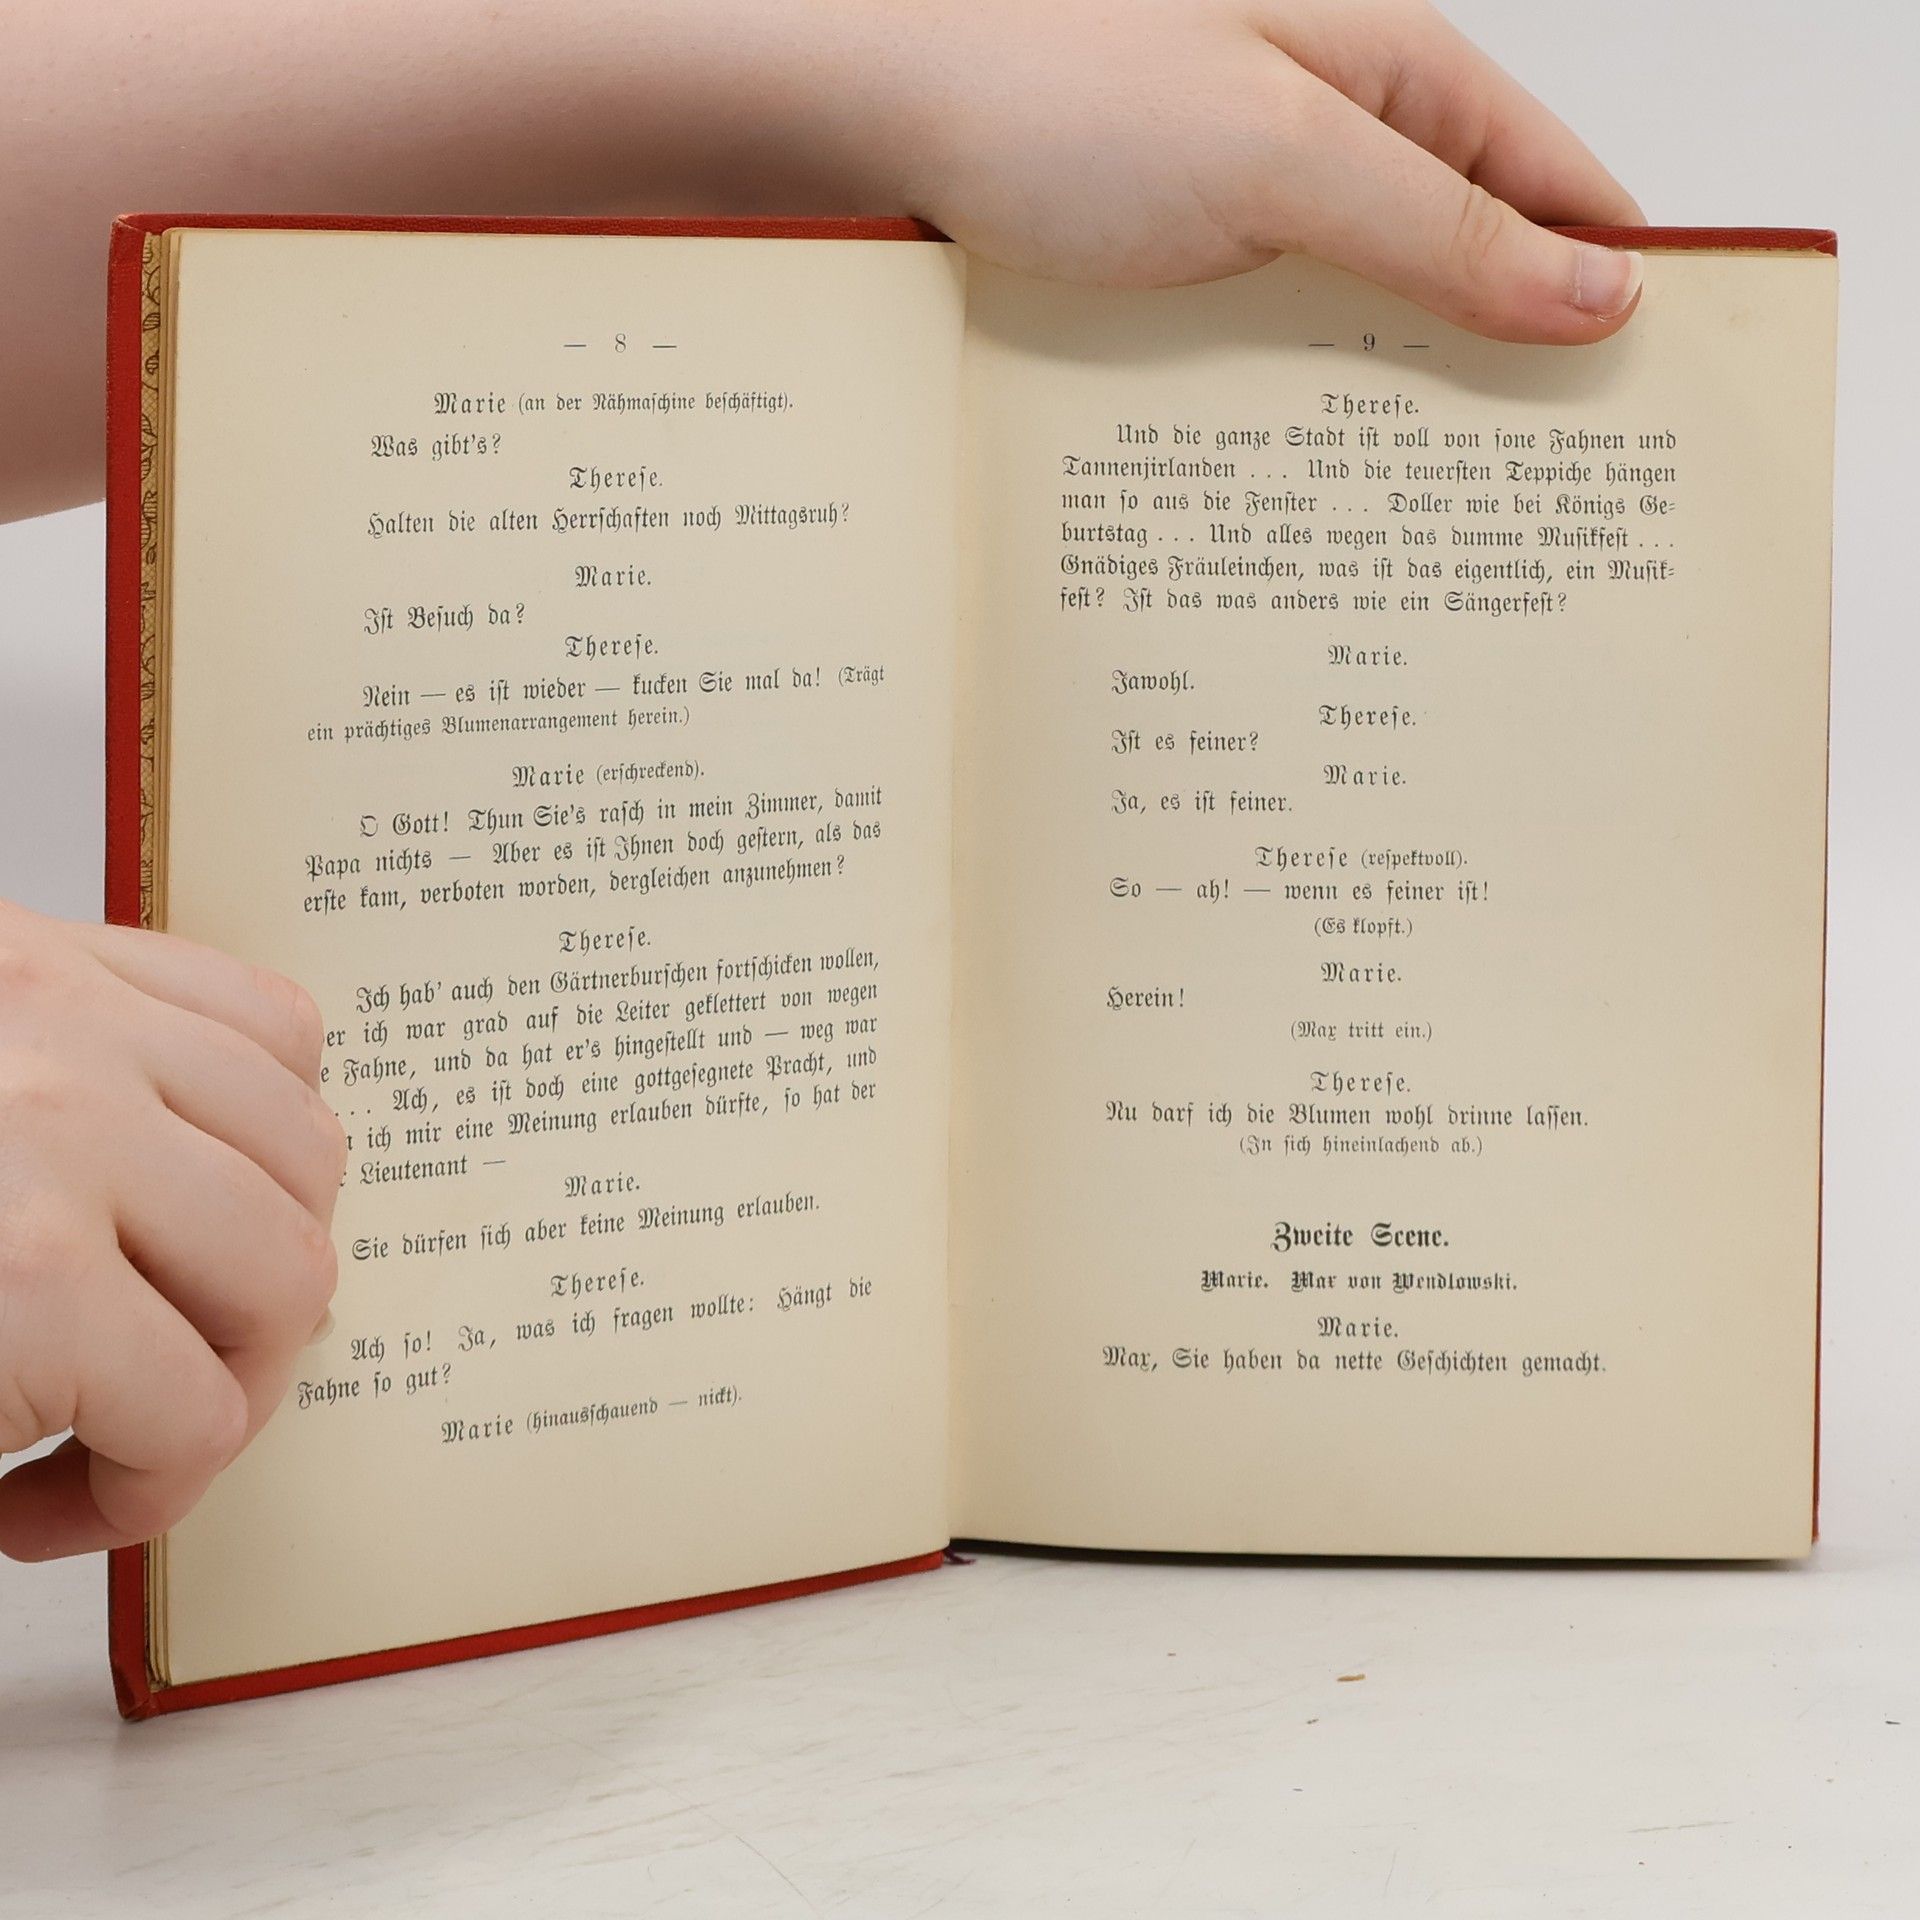 — 8 —
Marie (an der Nähmaschine beschäftigt).
Was gibt's?
Therese.
Halten die alten Herrschaften noch Mittagsruh?
Marie.
Ist Besuch da?
Therese.
Nein — es ist wieder — kucken Sie mal da! (Trägt
ein prächtiges Blumenarrangement herein.)
Marie (erschreckend).
O Gott! Thun Sie's rasch in mein Zimmer, damit
Papa nichts — Aber es ist Ihnen doch gestern, als das
erste kam, verboten worden, dergleichen anzunehmen?
Therese.
Ich hab' auch den Gärtnerburschen fortschicken wollen,
ich war grad auf die Leiter geklettert von wegen
Fahne, und da hat er's hingestellt und — weg war
. . . Ach, es ist doch eine gottgesegnete Pracht, und
ich mir eine Meinung erlauben dürfte, so hat der
Lieutenant —
Marie.
Sie dürfen sich aber keine Meinung erlauben.
Therese.
Ach so! Ja, was ich fragen wollte: Hängt die
Fahne so gut?
Marie (hinausschauend — nickt).
— 9 —
Therese.
Und die ganze Stadt ist voll von sone Fahnen und
Tannenjirlanden . . . Und die teuersten Teppiche hängen
man so aus die Fenster . . . Doller wie bei Königs Ge-
burtstag . . . Und alles wegen das dumme Musikfest . . .
Gnädiges Fräuleinchen, was ist das eigentlich, ein Musik-
fest? Ist das was anders wie ein Sängerfest?
Marie.
Jawohl.
Therese.
Ist es feiner?
Marie.
Ja, es ist feiner.
Therese (respektvoll).
So — ah! — wenn es feiner ist!
(Es klopft.)
Marie.
Herein!
(Max tritt ein.)
Therese.
Nu darf ich die Blumen wohl drinne lassen.
(In sich hineinlachend ab.)
Zweite Scene.
Marie. Max von Wendlowski.
Marie.
Max, Sie haben da nette Geschichten gemacht.